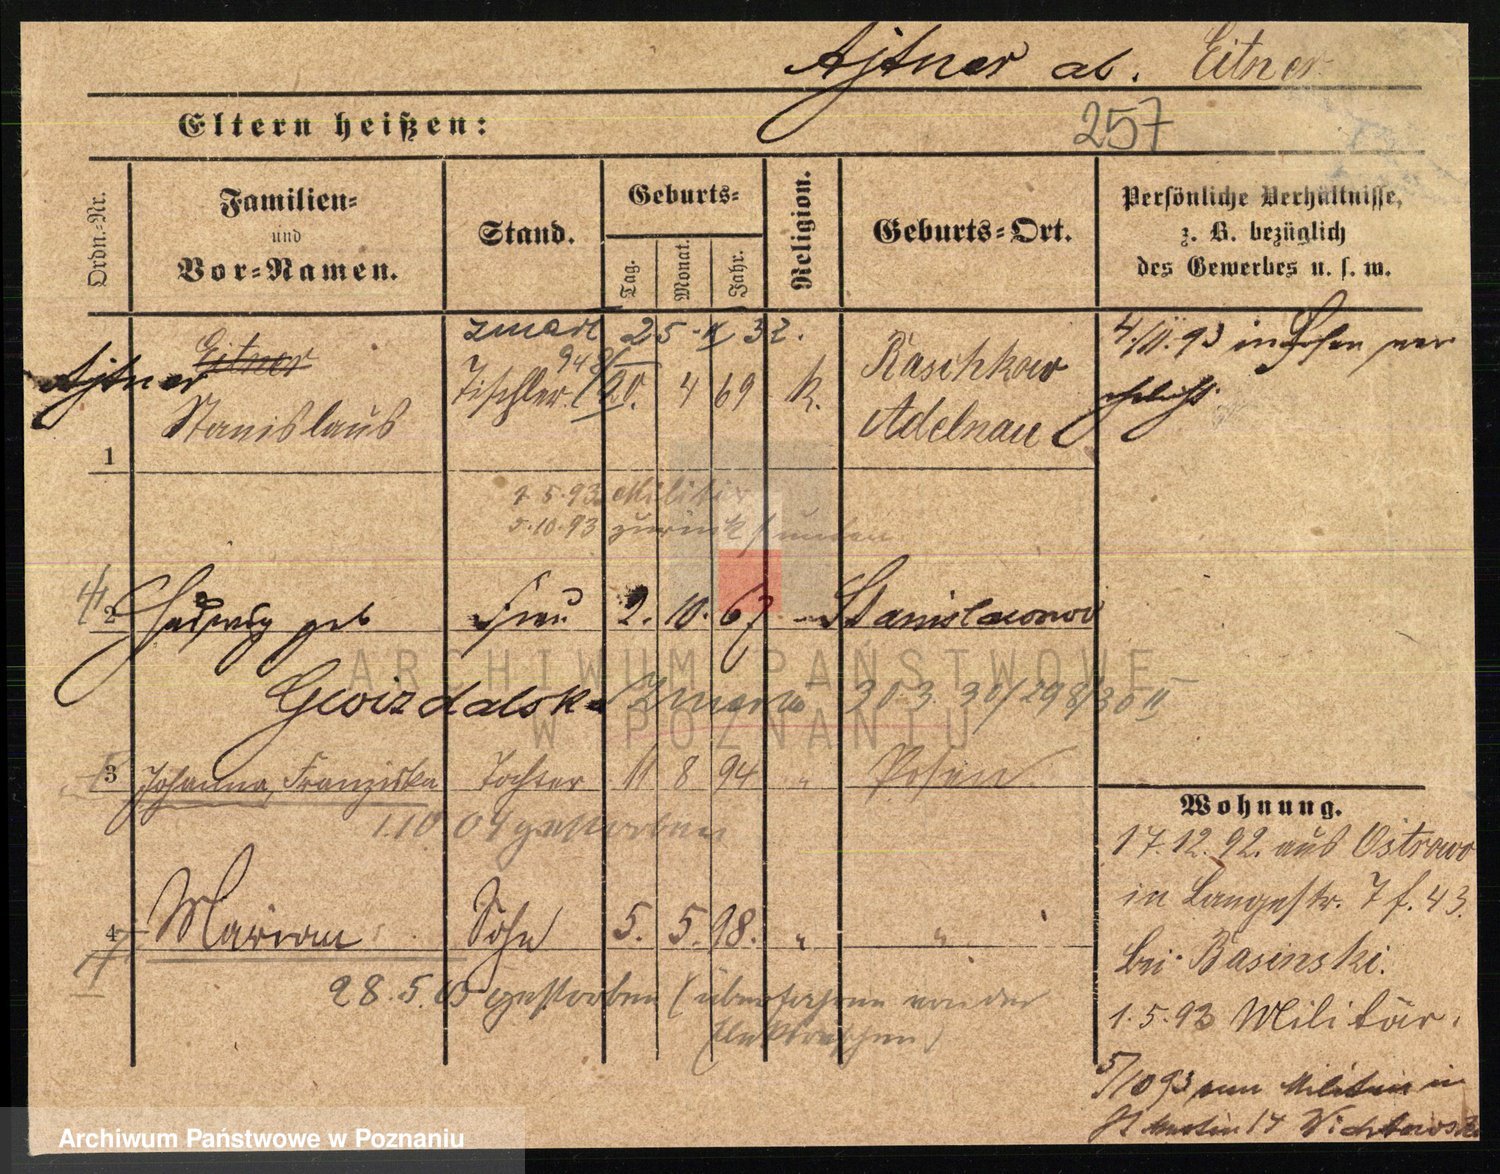 Ajtner al. Eitner
257
Eltern heißen:
Ordn.-Nr.
Familien-
und
Vor-Namen.
Stand.
Geburts-
Tag.
Monat.
Jahr.
Religion.
Geburts-Ort.
Persönliche Verhältnisse,
z. B. bezüglich
des Gewerbes u. s. w.
zmarł 25-X 32.
Eitner
Ajtner
Stanislaus
Tischler
4 69 K.
Raschkow
Adelnau
4/10.93 in Posen ver
ehelicht
1
1.5.93 Militär
5.10.93 zurück
2 Hedwig geb Frau 2. 10. 67 Stanislawowo
Gwizdalska Zmarła 30 3 30/298/30 II
3 Johanna, Franziska Tochter 11 8 94 " Posen
1 10 09 gestorben
4 Marian Sohn 5. 5. 98. " "
28.5.05 gestorben (überfahren von der
Elektrischen)
Wohnung.
17.12.92. aus Ostrowo
in Langestr. 7 f. 43.
bei Basinski.
1.5.93 Militär.
5/10 93 vom Militär in
St Martin 17
ARCHIWUM PAŃSTWOWE
W POZNANIU
Archiwum Państwowe w Poznaniu